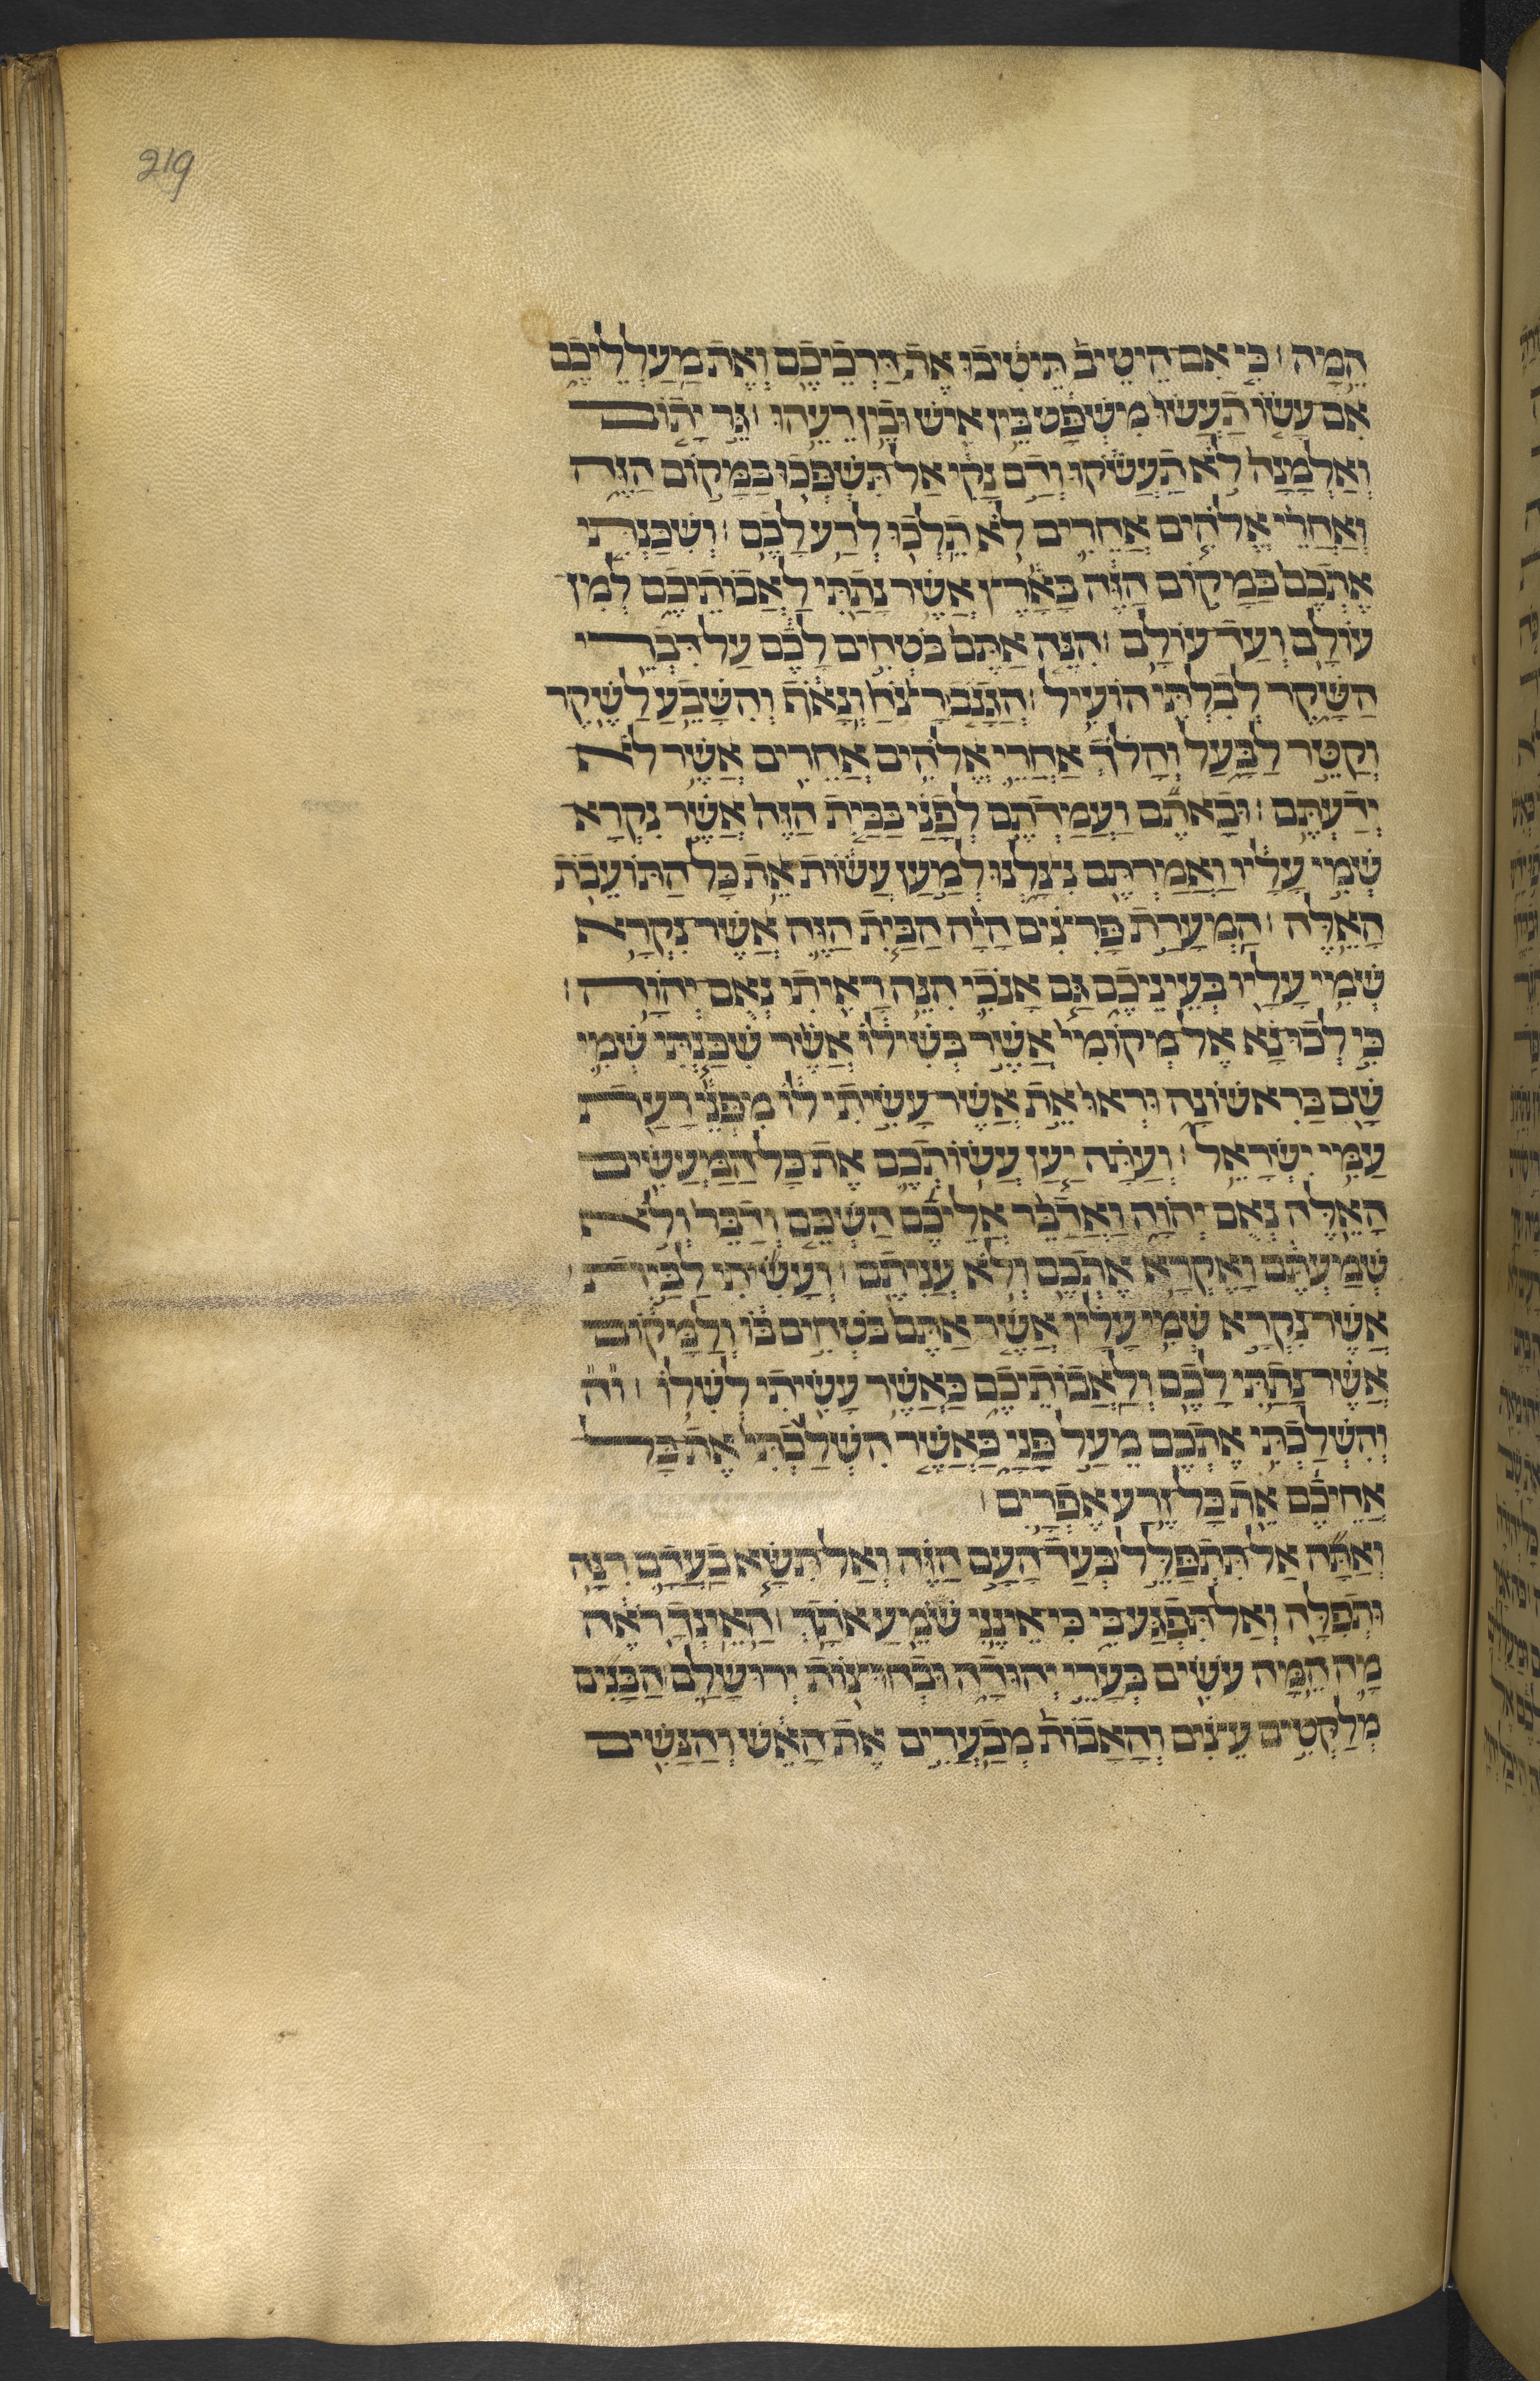 219
הֵמָּה׃ כִּי אִם הֵיטֵיב תֵּיטִיבוּ אֶת דַּרְכֵיכֶם וְאֶת מַעַלְלֵיכֶם
אִם עָשׂוֹ תַעֲשׂוּ מִשְׁפָּט בֵּין אִישׁ וּבֵין רֵעֵהוּ׃ גֵּר יָתוֹם
וְאַלְמָנָה לֹא תַעֲשֹׁקוּ וְדָם נָקִי אַל תִּשְׁפְּכוּ בַּמָּקוֹם הַזֶּה
וְאַחֲרֵי אֱלֹהִים אֲחֵרִים לֹא תֵלְכוּ לְרַע לָכֶם׃ וְשִׁכַּנְתִּי
אֶתְכֶם בַּמָּקוֹם הַזֶּה בָּאָרֶץ אֲשֶׁר נָתַתִּי לַאֲבוֹתֵיכֶם לְמִן
עוֹלָם וְעַד עוֹלָם׃ הִנֵּה אַתֶּם בֹּטְחִים לָכֶם עַל דִּבְרֵי
הַשָּׁקֶר לְבִלְתִּי הוֹעִיל׃ הֲגָנֹב רָצֹחַ וְנָאֹף וְהִשָּׁבֵעַ לַשֶּׁקֶר
וְקַטֵּר לַבָּעַל וְהָלֹךְ אַחֲרֵי אֱלֹהִים אֲחֵרִים אֲשֶׁר לֹא
יְדַעְתֶּם׃ וּבָאתֶם וַעֲמַדְתֶּם לְפָנַי בַּבַּיִת הַזֶּה אֲשֶׁר נִקְרָא
שְׁמִי עָלָיו וַאֲמַרְתֶּם נִצַּלְנוּ לְמַעַן עֲשׂוֹת אֵת כָּל הַתּוֹעֵבֹת
הָאֵלֶּה׃ הַמְעָרַת פָּרִצִים הָיָה הַבַּיִת הַזֶּה אֲשֶׁר נִקְרָא
שְׁמִי עָלָיו בְּעֵינֵיכֶם גַּם אָנֹכִי הִנֵּה רָאִיתִי נְאֻם יְהוָה׃
כִּי לְכוּ נָא אֶל מְקוֹמִי אֲשֶׁר בְּשִׁילוֹ אֲשֶׁר שִׁכַּנְתִּי שְׁמִי
שָׁם בָּרִאשׁוֹנָה וּרְאוּ אֵת אֲשֶׁר עָשִׂיתִי לוֹ מִפְּנֵי רָעַת
עַמִּי יִשְׂרָאֵל׃ וְעַתָּה יַעַן עֲשׂוֹתְכֶם אֶת כָּל הַמַּעֲשִׂים
הָאֵלֶּה נְאֻם יְהוָה וָאֲדַבֵּר אֲלֵיכֶם הַשְׁכֵּם וְדַבֵּר וְלֹא
שְׁמַעְתֶּם וָאֶקְרָא אֶתְכֶם וְלֹא עֲנִיתֶם׃ וְעָשִׂיתִי לַבַּיִת
אֲשֶׁר נִקְרָא שְׁמִי עָלָיו אֲשֶׁר אַתֶּם בֹּטְחִים בּוֹ וְלַמָּקוֹם
אֲשֶׁר נָתַתִּי לָכֶם וְלַאֲבוֹתֵיכֶם כַּאֲשֶׁר עָשִׂיתִי לְשִׁלוֹ׃ וה
וְהִשְׁלַכְתִּי אֶתְכֶם מֵעַל פָּנָי כַּאֲשֶׁר הִשְׁלַכְתִּי אֶת כָּל
אֲחֵיכֶם אֵת כָּל זֶרַע אֶפְרָיִם׃
וְאַתָּה אַל תִּתְפַּלֵּל בְּעַד הָעָם הַזֶּה וְאַל תִּשָּׂא בַעֲדָם רִנָּה
וּתְפִלָּה וְאַל תִּפְגַּע בִּי כִּי אֵינֶנִּי שֹׁמֵעַ אֹתָךְ׃ הַאֵינְךָ רֹאֶה
מָה הֵמָּה עֹשִׂים בְּעָרֵי יְהוּדָה וּבְחוּצוֹת יְרוּשָׁלָ͏ִם׃ הַבָּנִים
מְלַקְּטִים עֵצִים וְהָאָבוֹת מְבַעֲרִים אֶת הָאֵשׁ וְהַנָּשִׁים